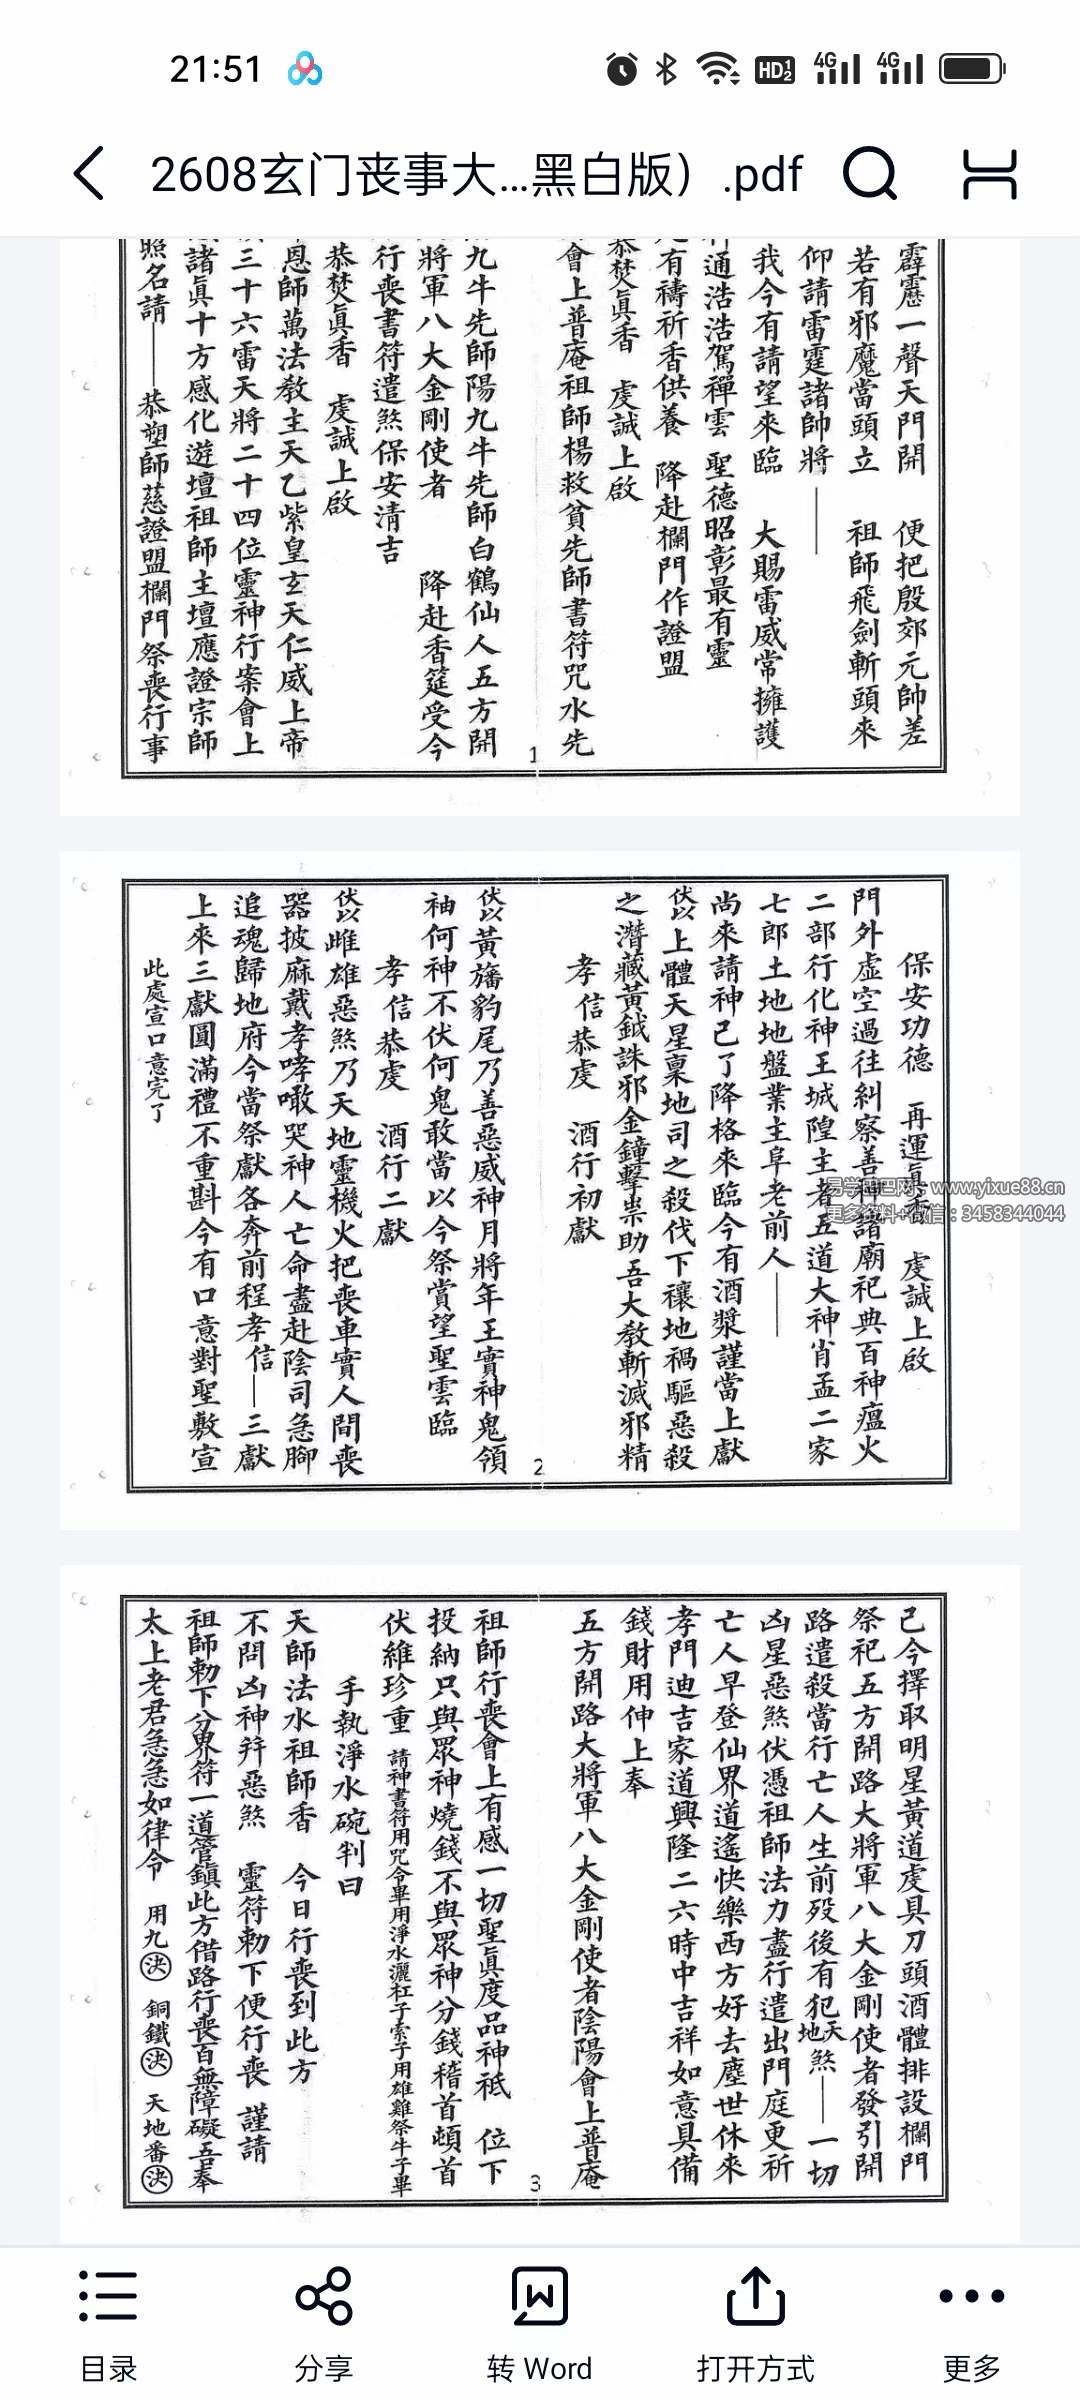 21:51
HD 1 2
4G
4G
2608玄门丧事大...黑白版）.pdf
霹靂一聲天門開 便把殷郊元帥差
若有邪魔當頭立 祖師飛劍斬頭來
仰請雷霆諸帥將——
我今有請望來臨 大賜雷威常擁護
通浩浩駕禪雲 聖德昭彰最有靈
有禱祈香供養 降赴欄門作證盟
恭焚眞香 虔誠上啟
會上普庵祖師楊救貧先師書符咒水先
1
九牛先師陽九牛先師白鶴仙人五方開
將軍八大金剛使者 降赴香筵受今
行喪書符遣煞保安清吉
恭焚眞香 虔誠上啟
恩師萬法教主天乙紫皇玄天仁威上帝
三十六雷天將二十四位靈神行案會上
諸眞十方感化遊壇祖師主壇應證宗師
照名請——恭塑師慈證盟欄門祭喪行事
保安功德 再運眞香 虔誠上啟
門外虛空過往糾察善神諸廟祀典百神瘟火
二部行化神王城隍主者五道大神肖孟二家
七郎土地地盤業主阜老前人——
尚來請神已了降格來臨今有酒漿謹當上獻
伏以上體天星稟地司之殺伐下禳地禍驅惡殺
之潛藏黃鉞誅邪金鐘擊祟助吾大教斬滅邪精
孝信恭虔 酒行初獻
2
伏以黃旛豹尾乃善惡威神月將年王實神鬼領
袖何神不伏何鬼敢當以今祭賞望聖雲臨
孝信恭虔 酒行二獻
伏以雌雄惡煞乃天地靈機火把喪車實人間喪
器披麻戴孝哮噉哭神人亡命盡赴陰司急腳
追魂歸地府今當祭獻各奔前程孝信—三獻
上來三獻圓滿禮不重斟今有口意對聖敷宣
此處宣口意完了
易学巴巴网：www.yixue88.cn
更多资料+微信：3458344044
己今擇取明星黃道虔具刀頭酒體排設欄門
祭祀五方開路大將軍八大金剛使者發引開
路遣殺當行亡人生前歿後有犯天地煞——一切
凶星惡煞伏憑祖師法力盡行遣出門庭更祈
亡人早登仙界道遙快樂西方好去塵世休來
孝門迪吉家道興隆二六時中吉祥如意具備
錢財用伸上奉
五方開路大將軍八大金剛使者陰陽會上普庵
3
祖師行喪會上有感一切聖眞度品神祇 位下
投納只與眾神燒錢不與眾神分錢稽首頓首
伏維珍重 請神書符用咒令畢用淨水灑杠子索子用雄雞祭牛子畢
手執淨水碗判曰
天師法水祖師香 今日行喪到此方
不問凶神并惡煞 靈符勅下便行喪 謹請
祖師勅下分界符一道管鎮此方借路行喪百無障礙吾奉
太上老君急急如律令 用九決 銅鐵決 天地番決
目录
分享
转 Word
打开方式
更多